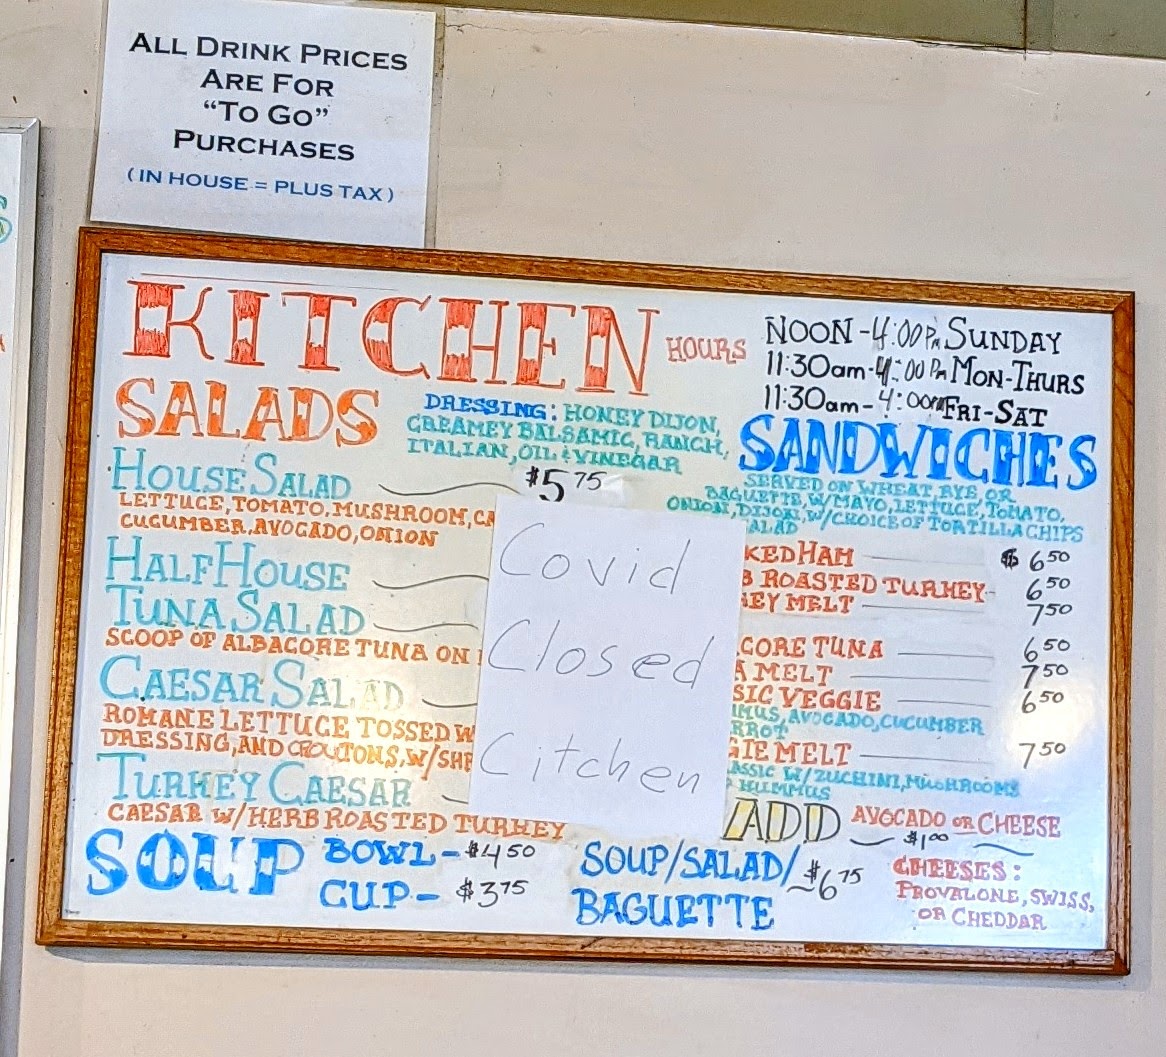 ALL DRINK PRICES
ARE FOR
“TO GO”
PURCHASES
(IN HOUSE = PLUS TAX)
KITCHEN HOURS
NOON - 4:00Pm SUNDAY
11:30am - 4:00Pm MON-THURS
11:30am - 4:00Pm FRI-SAT
SALADS
DRESSING: HONEY DIJON,
CREAMEY BALSAMIC, RANCH,
ITALIAN, OIL & VINEGAR
HOUSE SALAD $5 75
LETTUCE, TOMATO, MUSHROOM, CA
CUCUMBER, AVOCADO, ONION
HALF HOUSE
TUNA SALAD
SCOOP OF ALBACORE TUNA ON
CAESAR SALAD
ROMANE LETTUCE TOSSED W
DRESSING, AND CROUTONS, W/SHR
TURKEY CAESAR
CAESAR W/HERB ROASTED TURKEY
Covid
Closed
Citchen
SANDWICHES
SERVED ON WHEAT, RYE, OR
BAGUETTE, W/MAYO, LETTUCE, TOMATO,
ONION, DIJON, W/CHOICE OF TORTILLA CHIPS
ALAD
KED HAM $6 50
B ROASTED TURKEY - 6 50
EY MELT 7 50
CORE TUNA 6 50
A MELT 7 50
SIC VEGGIE 6 50
MUS, AVOCADO, CUCUMBER
RROT
GIE MELT 7 50
ASSIC W/ZUCHINI, MUSHROOMS
HUMMUS
ADD AVOCADO OR CHEESE
$1 00
SOUP BOWL - $4 50
CUP - $3 75
SOUP/SALAD/
BAGUETTE $6 75
CHEESES:
PROVALONE, SWISS,
OR CHEDDAR